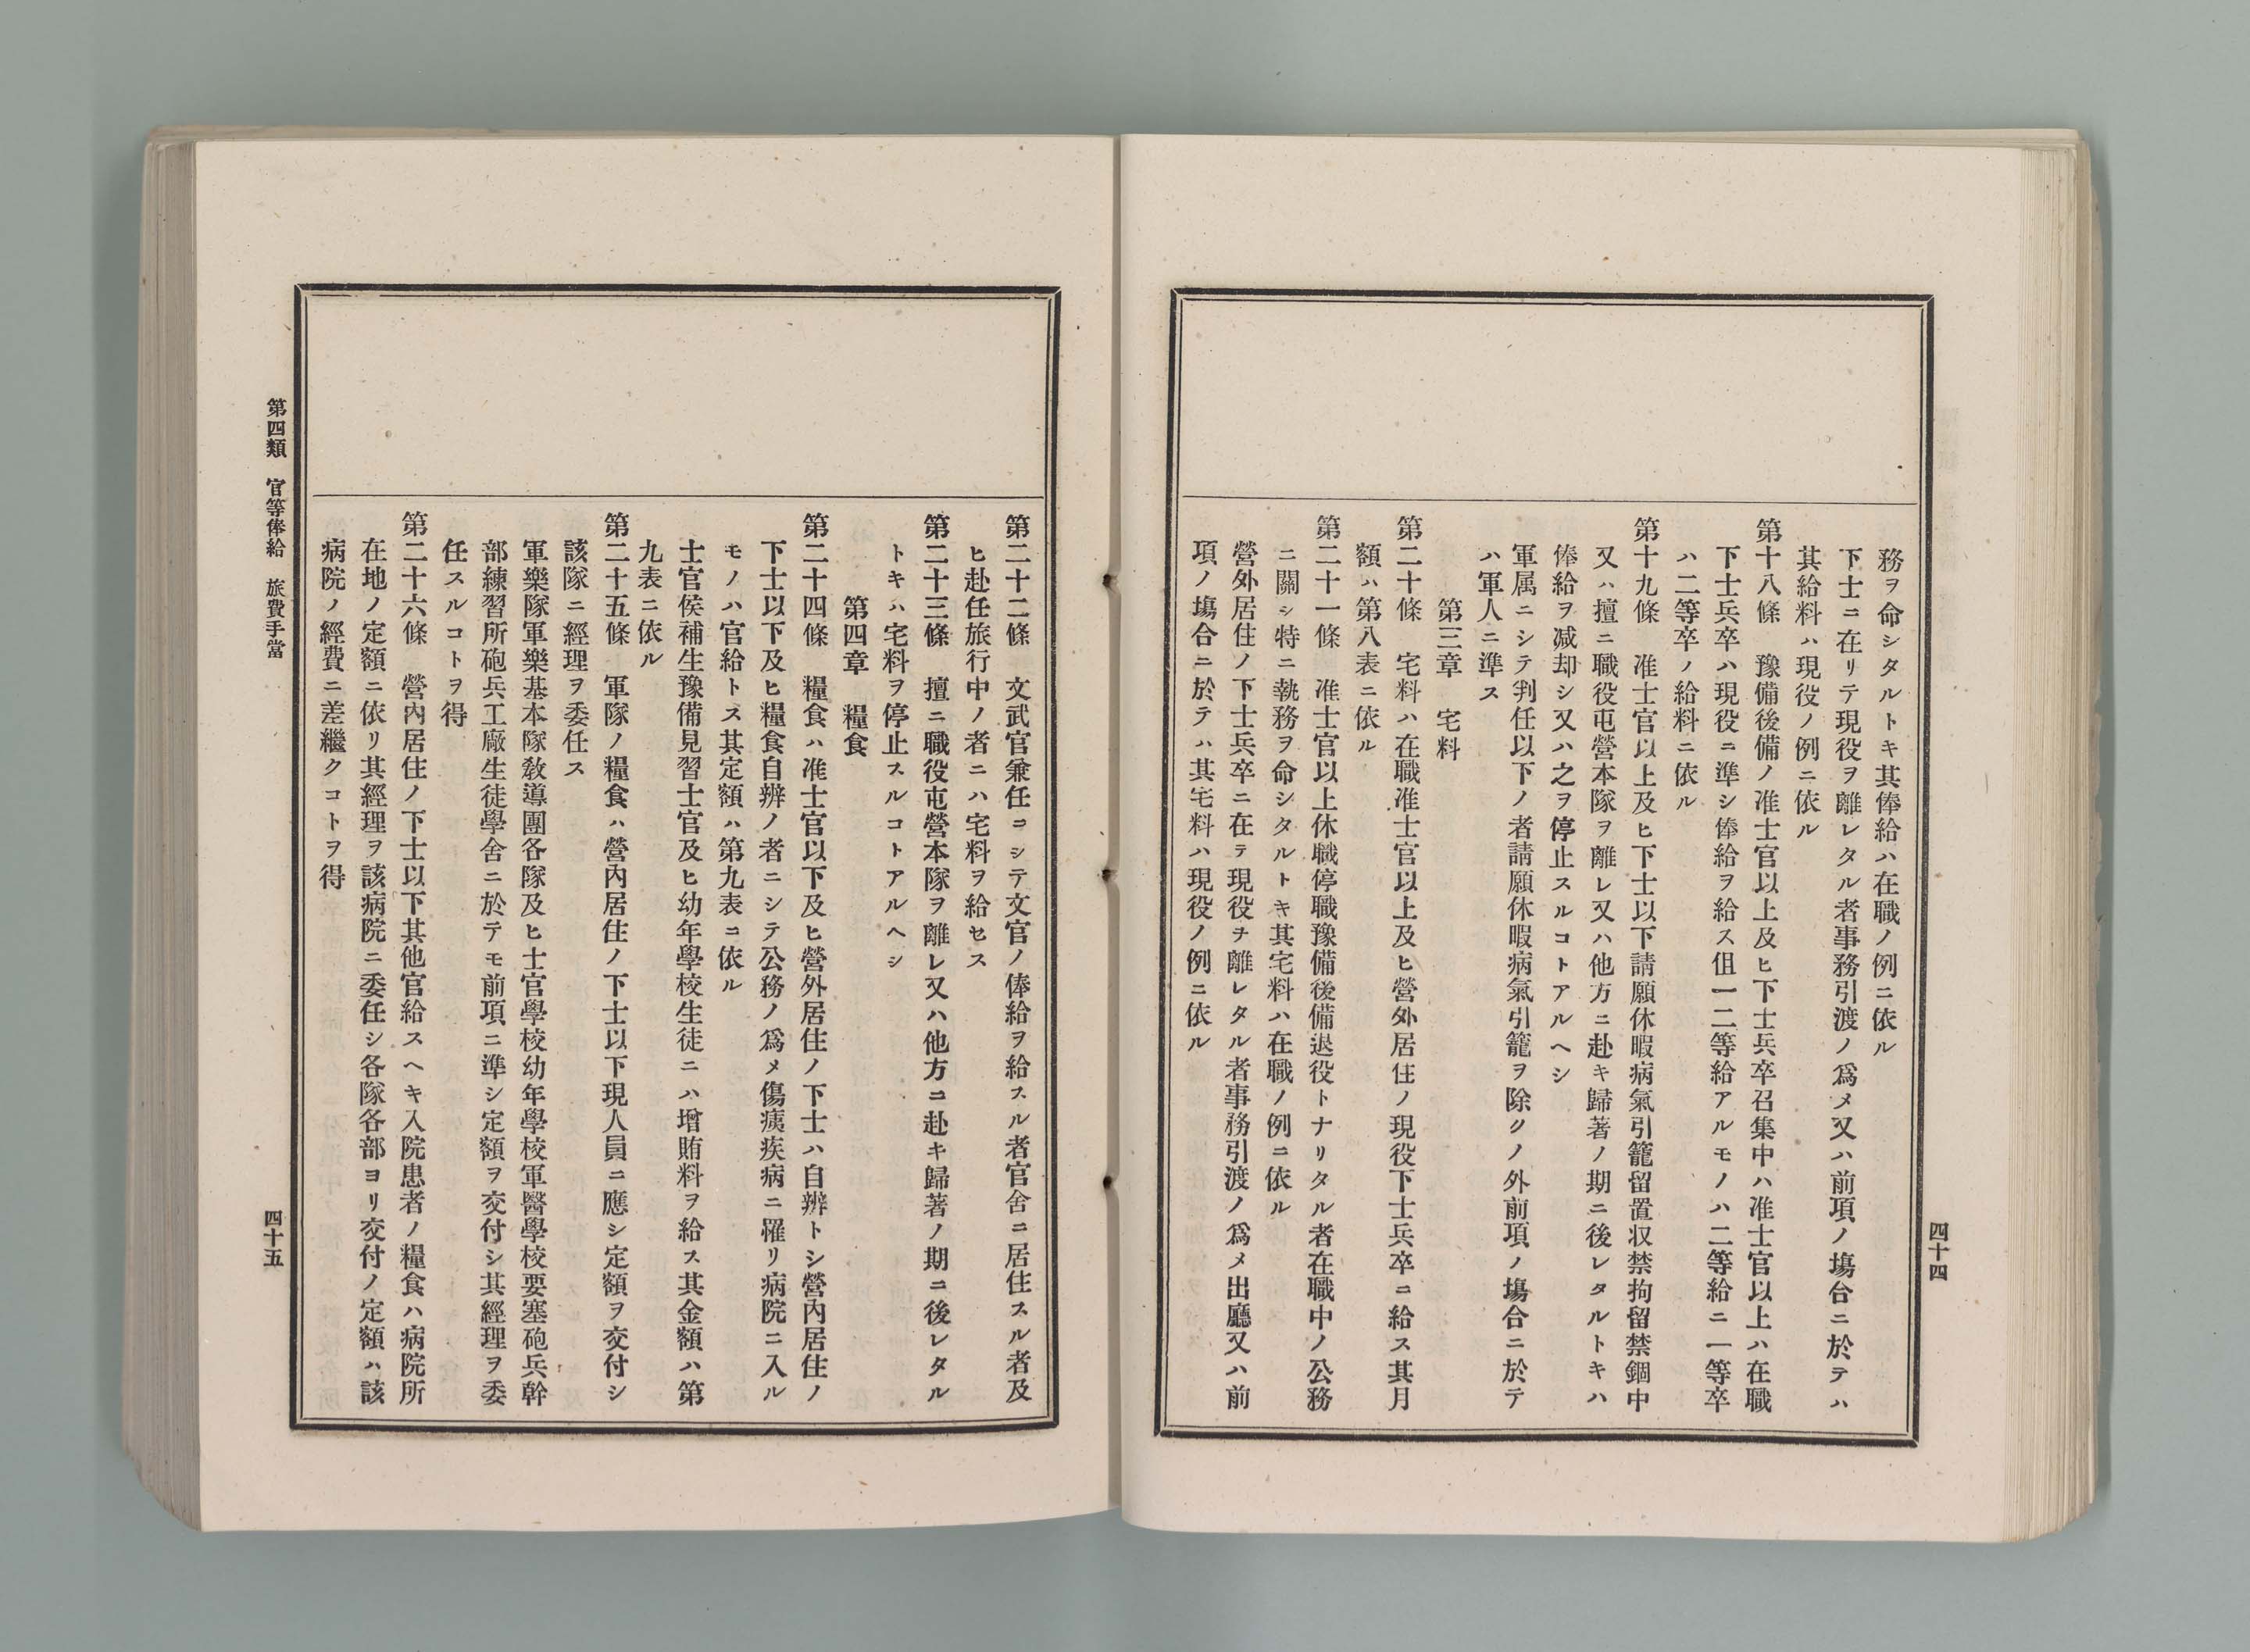 務ヲ命シタルトキ其俸給ハ在職ノ例ニ依ル
下士ニ在リテ現役ヲ離レタル者事務引渡ノ爲メ又ハ前項ノ塲合ニ於テハ
其給料ハ現役ノ例ニ依ル
第十八條　豫備後備ノ准士官以上及ヒ下士兵卒召集中ハ准士官以上ハ在職
下士兵卒ハ現役ニ準シ俸給ヲ給ス伹一二等給アルモノハ二等給ニ一等卒
ハ二等卒ノ給料ニ依ル
第十九條　准士官以上及ヒ下士以下請願休暇病氣引籠留置収禁拘留禁錮中
又ハ擅ニ職役屯營本隊ヲ離レ又ハ他方ニ赴キ歸著ノ期ニ後レタルトキハ
俸給ヲ减却シ又ハ之ヲ停止スルコトアルヘシ
軍属ニシテ判任以下ノ者請願休暇病氣引籠ヲ除クノ外前項ノ塲合ニ於テ
ハ軍人ニ準ス
第三章　宅料
第二十條　宅料ハ在職准士官以上及ヒ營外居住ノ現役下士兵卒ニ給ス其月
額ハ第八表ニ依ル
第二十一條　准士官以上休職停職豫備後備退役トナリタル者在職中ノ公務
ニ關シ特ニ執務ヲ命シタルトキ其宅料ハ在職ノ例ニ依ル
營外居住ノ下士兵卒ニ在テ現役チ離レタル者事務引渡ノ爲メ出廳又ハ前
項ノ塲合ニ於テハ其宅料ハ現役ノ例ニ依ル
四十四
第二十二條　文武官兼任ニシテ文官ノ俸給ヲ給スル者官舍ニ居住スル者及
ヒ赴任旅行中ノ者ニハ宅料ヲ給セス
第二十三條　擅ニ職役屯營本隊ヲ離レ又ハ他方ニ赴キ歸著ノ期ニ後レタル
トキハ宅料ヲ停止スルコトアルヘシ
第四章　糧食
第二十四條　糧食ハ准士官以下及ヒ營外居住ノ下士ハ自辨トシ營內居住ノ
下士以下及ヒ糧食自辨ノ者ニシテ公務ノ爲メ傷痍疾病ニ罹リ病院ニ入ル
モノハ官給トス其定額ハ第九表ニ依ル
士官侯補生豫備見習士官及ヒ幼年學校生徒ニハ增賄料ヲ給ス其金額ハ第
九表ニ依ル
第二十五條　軍隊ノ糧食ハ營內居住ノ下士以下現人員ニ應シ定額ヲ交付シ
該隊ニ經理ヲ委任ス
軍樂隊軍樂基本隊敎導團各隊及ヒ士官學校幼年學校軍醫學校要塞砲兵幹
部練習所砲兵工廠生徒學舍ニ於テモ前項ニ準シ定額ヲ交付シ其經理ヲ委
任スルコトヲ得
第二十六條　營內居住ノ下士以下其他官給スヘキ入院患者ノ糧食ハ病院所
在地ノ定額ニ依リ其經理ヲ該病院ニ委任シ各隊各部ヨリ交付ノ定額ハ該
病院ノ經費ニ差繼クコトヲ得
第四類　官等俸給　旅費手當
四十五